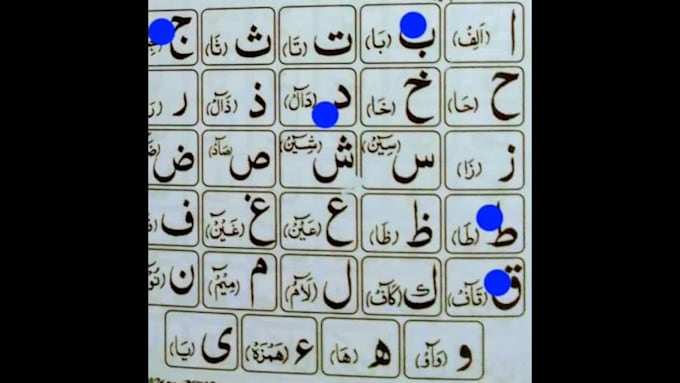 ا (اَلِفْ) ب (بَا) ت (تَا) ث (ثَا) ج
ح (حَا) خ (خَا) د (دَالْ) ذ (ذَالْ) ر
ز (زَا) س (سِيْنْ) ش (شِيْنْ) ص (صَادْ) ض
ط (طَا) ظ (ظَا) ع (عَيْنْ) غ (غَيْنْ) ف
ق (قَافْ) ك (كَافْ) ل (لَامْ) م (مِيْمْ) ن
و (وَاوْ) ھ (هَا) ء (هَمْزَهْ) ی (يَا)